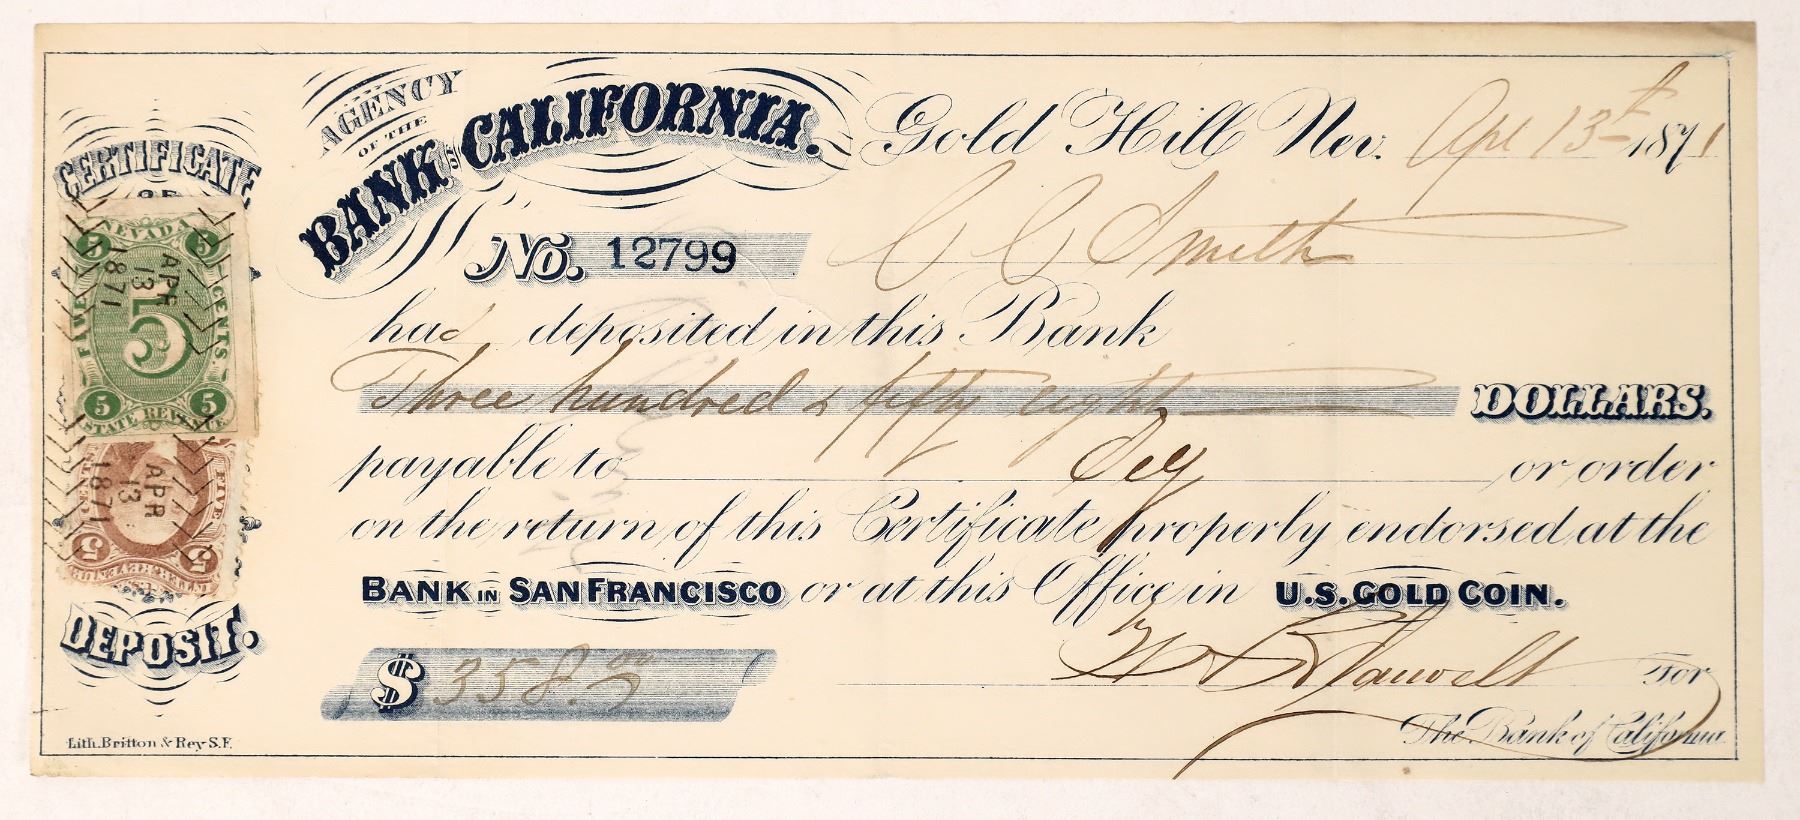 AGENCY
OF THE
BANK OF CALIFORNIA.
Gold Hill Nev. Apl 13th 1871
No. 12799 C C Smith
had deposited in this Bank
Three hundred & fifty eight DOLLARS.
payable to Self, or order
on the return of this Certificate properly endorsed at the
BANK IN SAN FRANCISCO or at this Office in U.S. GOLD COIN.
$ 358.00
For
The Bank of California
CERTIFICATE
OF
NEVADA
5 5
FIVE CENTS.
5
5 5
STATE REVENUE
APR
13
1871
FIVE CENTS
APR
13
1871
5 5
DEPOSIT.
Lith. Britton & Rey S.F.